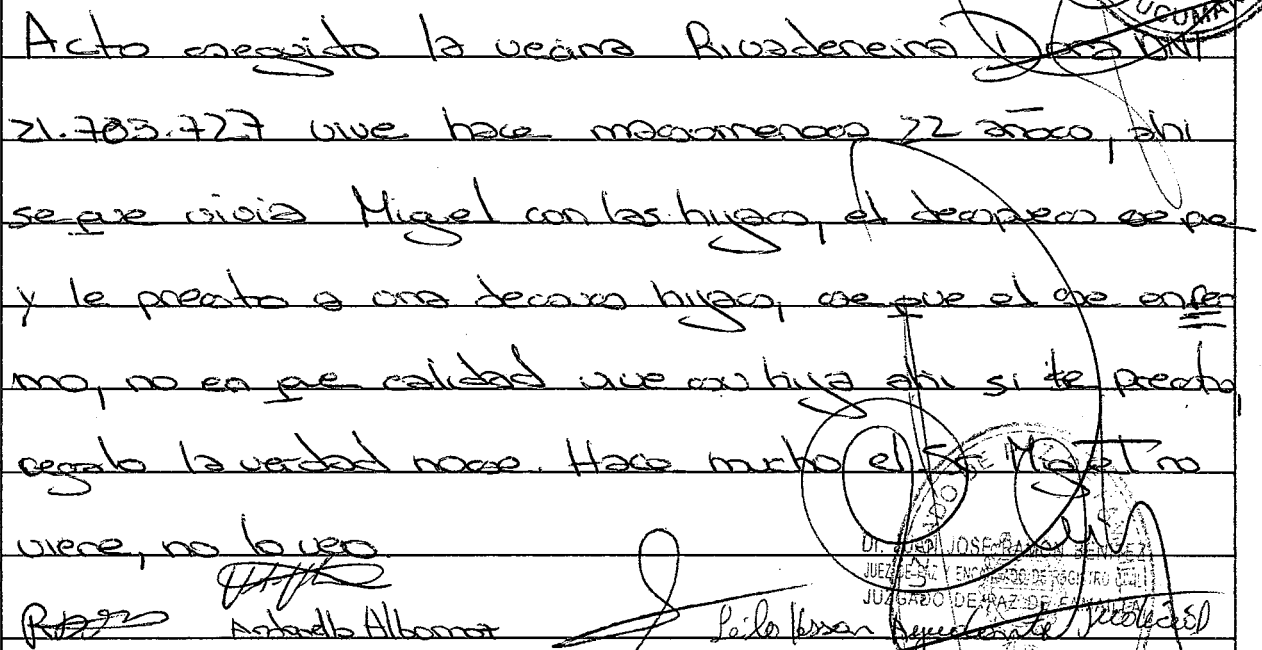 Acto seguido la vecina Rivadeneira Dora DNI
21.783.727 vive hace masomenos 22 años, ahi
se que vivia Miguel con las hijas, el despues se fue
y le presto a una desus hijas, se que el se enfer
mo, no en que calidad vive su hija ahi si te presto,
regalo la verdad nose. Hace mucho el Sr Miguel no
viene, no lo veo
TUCUMAN
JOSE RAMON BENITEZ
JUEZ DE PAZ Y ENCARGADO DE REGISTRO CIVIL
JUZGADO DE PAZ DE FAMAILLA
Antonella Albornoz
Ayudante Judicial